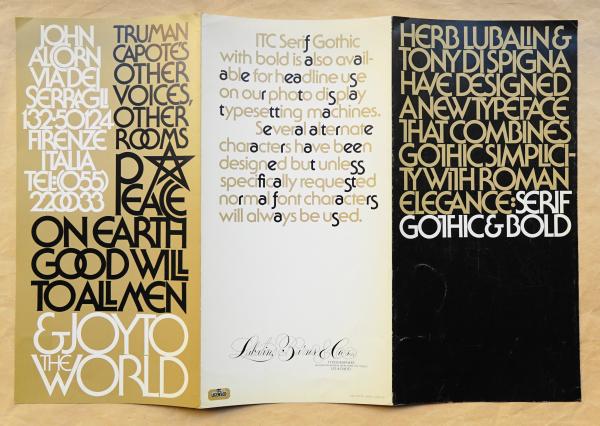 JOHN
ALCORN
VIA DEI
SERRAGLI
132·50124
FIRENZE
ITALIA
TEL:(055)
220033
TRUMAN
CAPOTE'S
OTHER
VOICES,
OTHER
ROOMS
PEACE
ON EARTH
GOOD WILL
TO ALL MEN
& JOY TO
THE
WORLD
ITC Serif Gothic
with bold is also avail-
able for headline use
on our photo display
typesetting machines.
Several alternate
characters have been
designed but unless
specifically requested
normal font characters
will always be used.
Lubalin, Burns & Co. Inc.
HERB LUBALIN &
TONY DI SPIGNA
HAVE DESIGNED
A NEW TYPEFACE
THAT COMBINES
GOTHIC SIMPLICI-
TY WITH ROMAN
ELEGANCE: SERIF
GOTHIC & BOLD